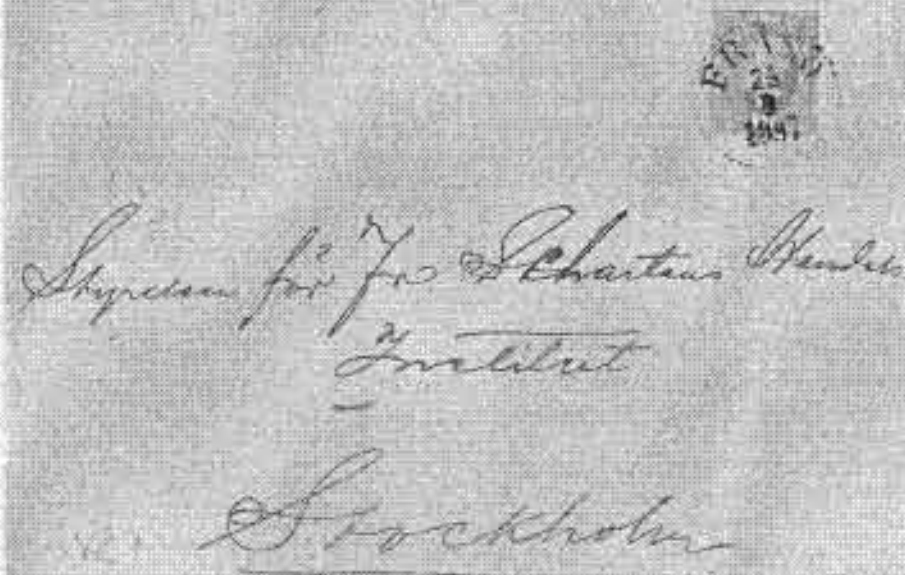 25
1897
Styrelsen för Fr Schartaus Handels
Institut
Stockholm